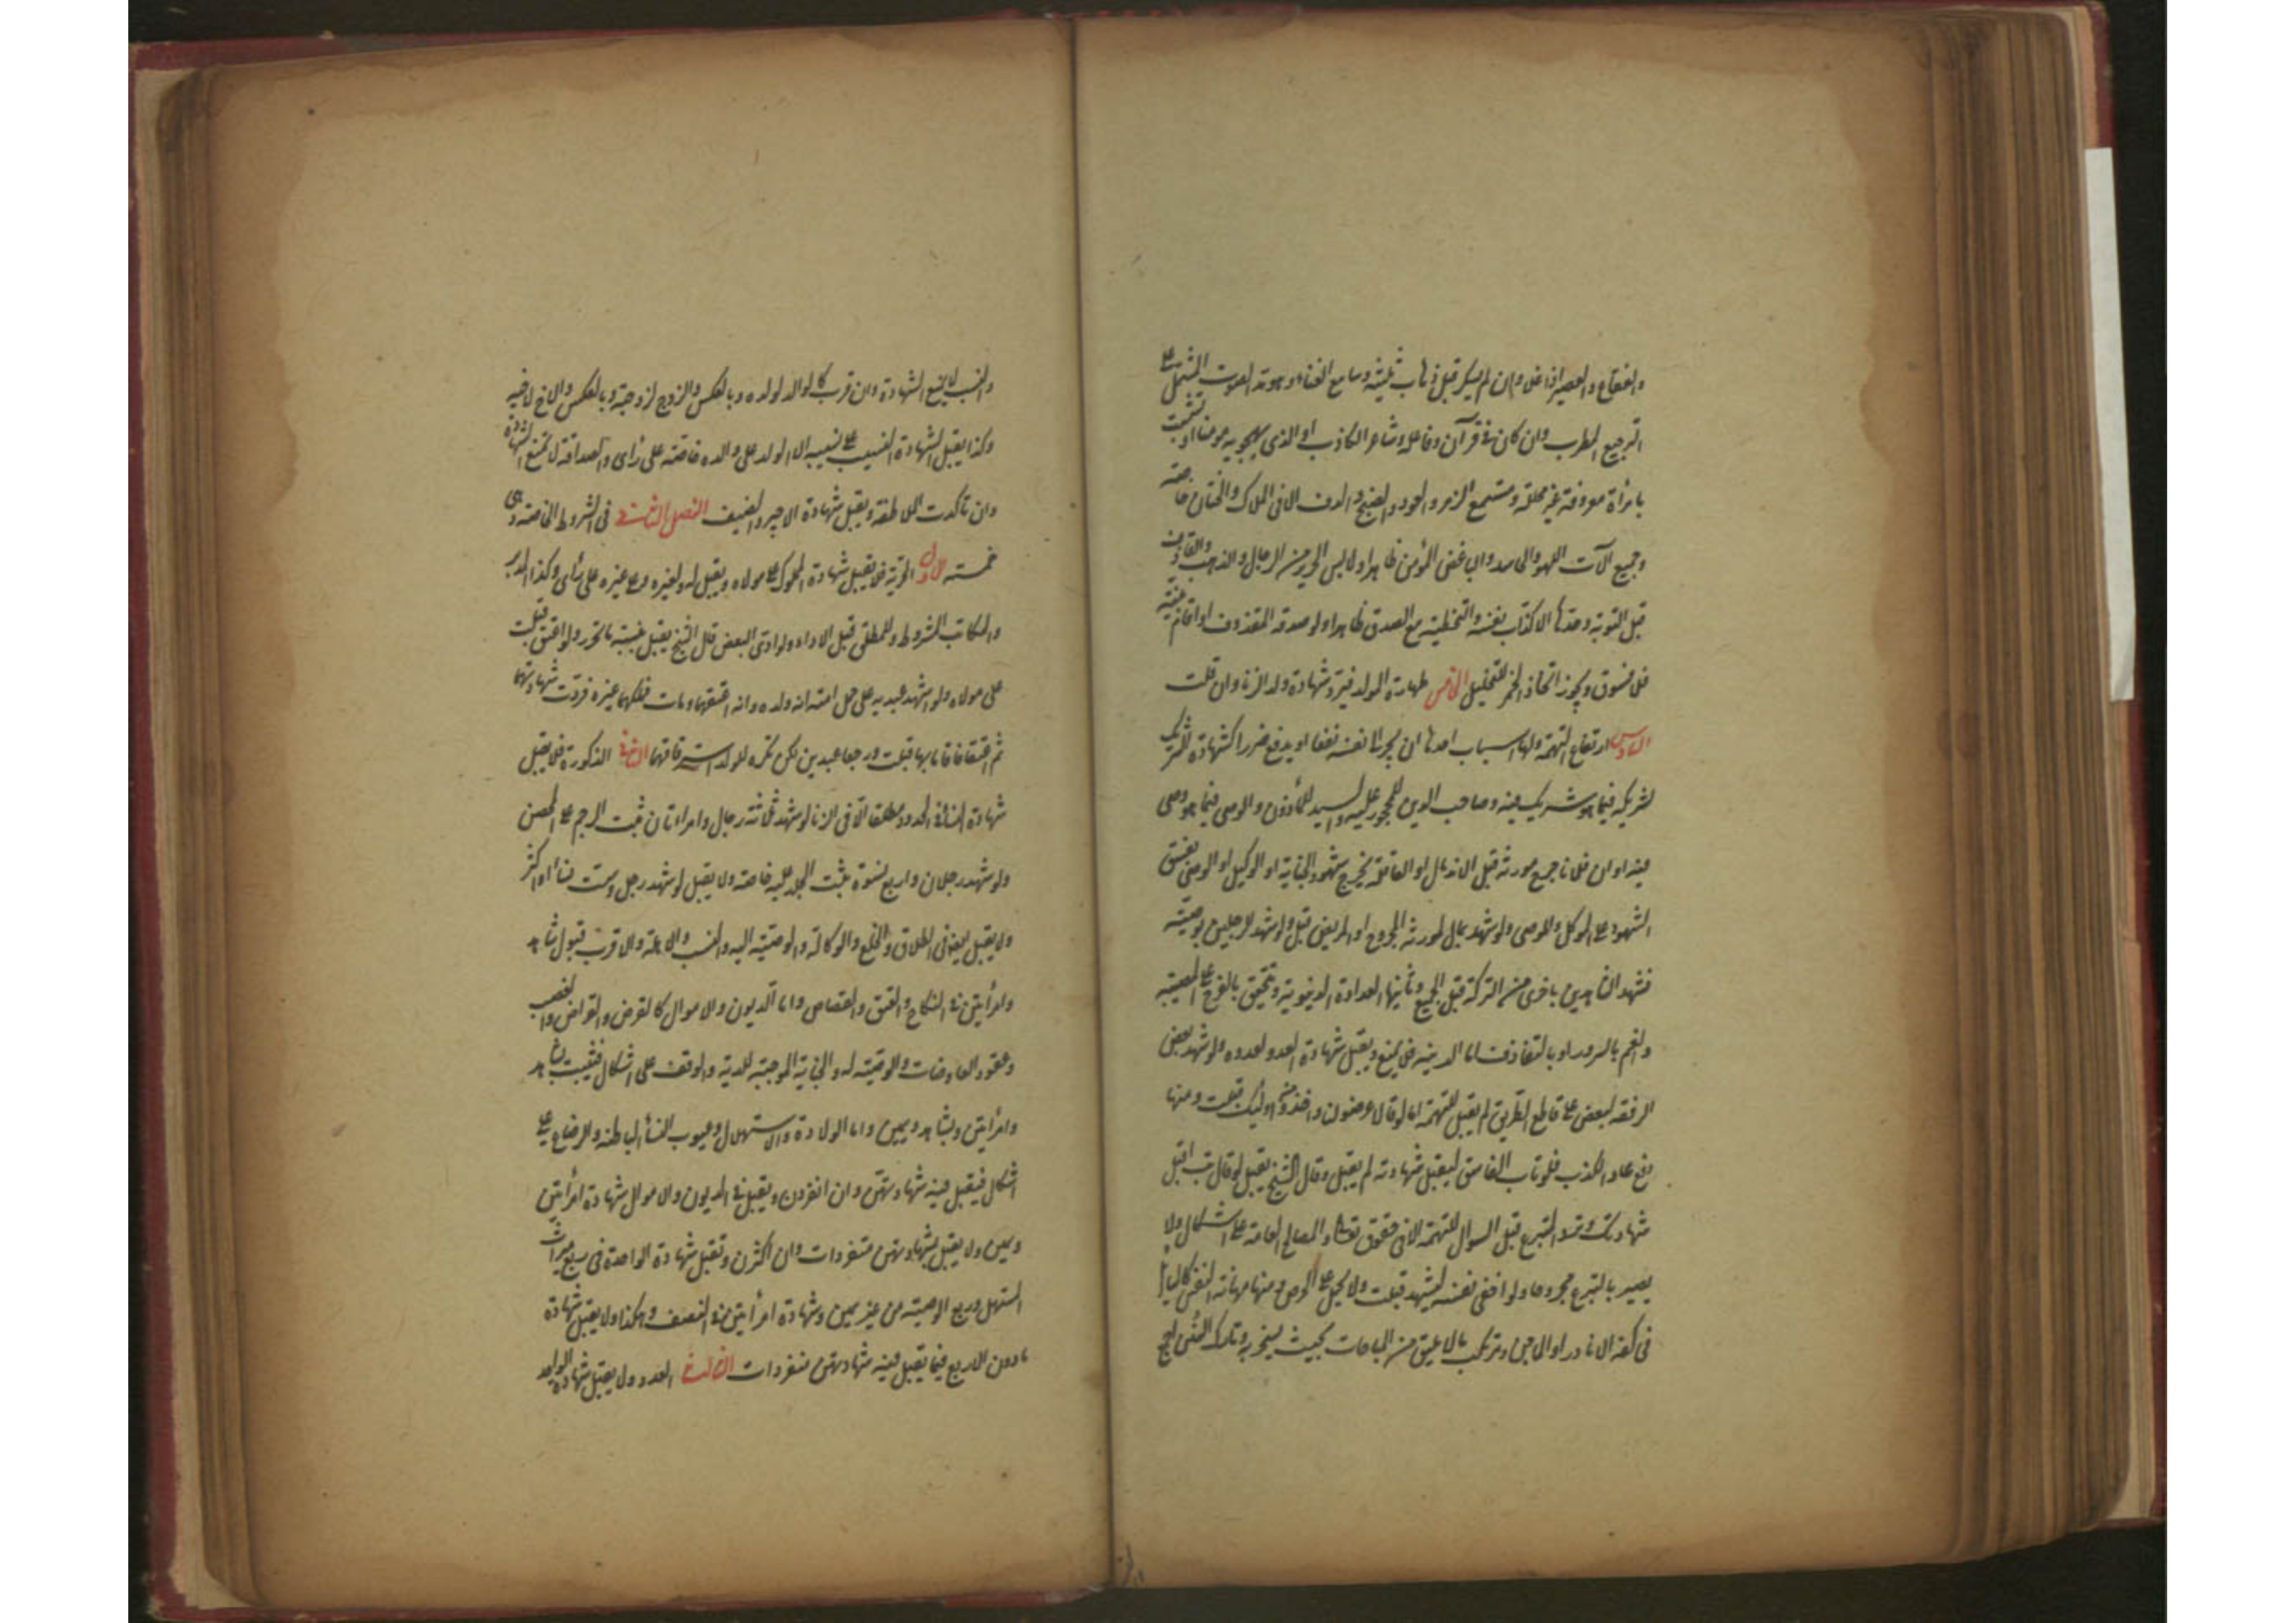 والفقاع والعصير اذا غلى وان لم يسكر قبل ذهاب ثلثيه وسامع الغناء وهو مد الصوت المشتمل على
الترجيع المطرب وان كان فى قرآن وفاعله وشاعر الكاذب او الذى يهجو به مؤمنا او تشبب
بامرأة معروفة غير محللة ومستمع الزمر والعود والصنج والدف الا فى الملاك والختان خاصة
وجميع آلات اللهو والحاسد والباغض المؤمن ظاهرا ولابس الحرير من الرجال والذهب والقاذف
قبل التوبة وحدها الاكذاب نفسه والتخطئة مع الصدق ظاهرا ولو صدقه المقذوف او اقام بينة
فلا فسوق ويجوز اتخاذ الخمر للتخليل الخامس طهارة المولد فترد شهادة ولد الزنا وان قلت
السادس ارتفاع التهمة ولها اسباب احدها ان يجر الى نفسه نفعا او يدفع ضررا كشهادة الشريك
لشريكه فيما هو شريك فيه وصاحب الدين للمحجور عليه والسيد للمأذون والوصى فيما هو وصى
فيه او ان فلانا جرح مورثه قبل الاندمال او العاقلة بجرح شهود الجناية او الوكيل او الوصى بفسق
الشهود على الموكل والموصى ولو شهد بمال لمورثه المجروح او المريض قبل ولو شهد لرجلين بوصية
فشهد الشاهدين باخرى من التركة قبل الجميع وثانيها العداوة الدنيوية وتتحقق بالفرح على المصيبة
والغم بالسرور او بالتقاذف اما الدينية فلا يمنع ويقبل شهادة العدو لعدوه ولو شهد بعض
الرفقة لبعض على قاطع الطريق لم يقبل للتهمة اما لو قال عرضوا لنا واخذوا من اولئك قبلت ومنها
دفع عار الكذب فلو تاب الفاسق ليقبل شهادته لم يقبل وقال الشيخ يقبل لو قال تب اقبل
شهادتك وترد المتبرع قبل السوال للتهمة الا فى حقوقه تعالى والمصالح العامة على اشكال ولا
يصير بالتبرع مجروحا ولو اخفى نفسه ليشهد قبلت ولا يحمل على الحرص ومنها مهانة النفس كالسايل
فى كفه الا نادرا او الماجن ومرتكب ما لا يليق من المباحات بحيث يسخر به وتارك السنن اجمع
والنسب لا يمنع الشهادة وان قرب كالوالد لولده وبالعكس والزوج لزوجته وبالعكس والاخ لاخيه
وكذا يقبل الشهادة النسيب على نسيبه الا الولد على والده خاصة على رأى والصداقة لا تمنع الشهادة
وان تأكدت الملاطفة ويقبل شهادة الاجير والضيف الفصل الثانى فى الشروط الخاصة وهى
خمسة الاول الحرية فلا يقبل شهادة المملوك على مولاه ويقبل له ولغيره وعلى غيره على رأى وكذا المدبر
والمكاتب المشروط والمطلق قبل الاداء ولو ادى البعض قال الشيخ يقبل بنسبة ما تحرر ولو اعتق قبلت
على مولاه ولو اشهد عبديه على حمل امته انه ولده وانه اعتقهما ومات فملكهما غيره فردت شهادتهما
ثم اعتقا فاقاما بها قبلت ورجعا عبدين لكن يكره للولد استرقاقهما الثانى الذكورة فلا يقبل
شهادة النساء فى الحدود مطلقا الا فى الزنا لو شهد ثلاثة رجال وامرأتان ثبت الرجم على المحصن
ولو شهد رجلان واربع نسوة يثبت الجلد عليه خاصة ولا يقبل لو شهد رجل وست نساء او اكثر
ولا يقبل ايضا فى الطلاق والخلع والوكالة والوصية اليه والنسب والاهلة والاقرب قبول شاهد
وامرأتين فى النكاح والعتق والقصاص واما الديون والاموال كالقرض والقراض والغصب
وعقود المعاوضات والوصية له والجناية الموجبة للدية والوقف على اشكال فيثبت بشاهد
وامرأتين وبشاهد ويمين واما الولادة والاستهلال وعيوب النساء الباطنة والرضاع على
اشكال فيقبل فيه شهادتهن وان انفردن ويقبل فى الديون والاموال شهادة امرأتين
ويمين ولا يقبل شهادتهن منفردات وان اكثرن وتقبل شهادة الواحدة فى ربع ميراث
المستهل وربع الوصية من غير يمين وشهادة امرأتين فى النصف وهكذا ولا يقبل شهادة
مادون الاربع فيما يقبل فيه شهادتهن منفردات الثالث العدد ولا يقبل شهادة الواحد